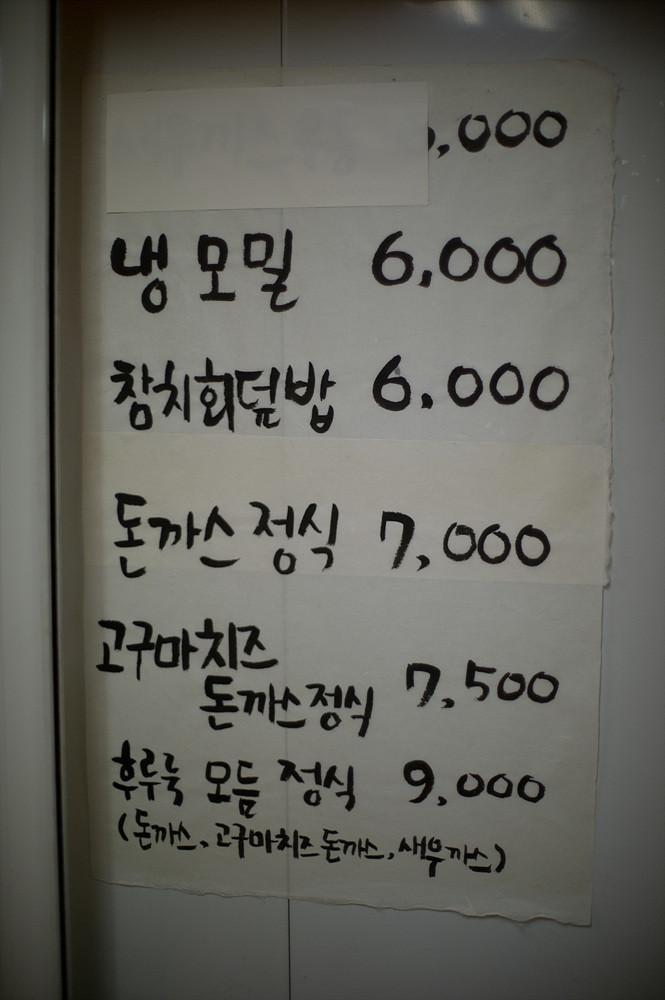 ,000
냉 모밀 6,000
참치회덮밥 6,000
돈까스 정식 7,000
고구마치즈
돈까스정식 7,500
후루룩 모듬 정식 9,000
(돈까스, 고구마치즈돈까스, 새우까스)